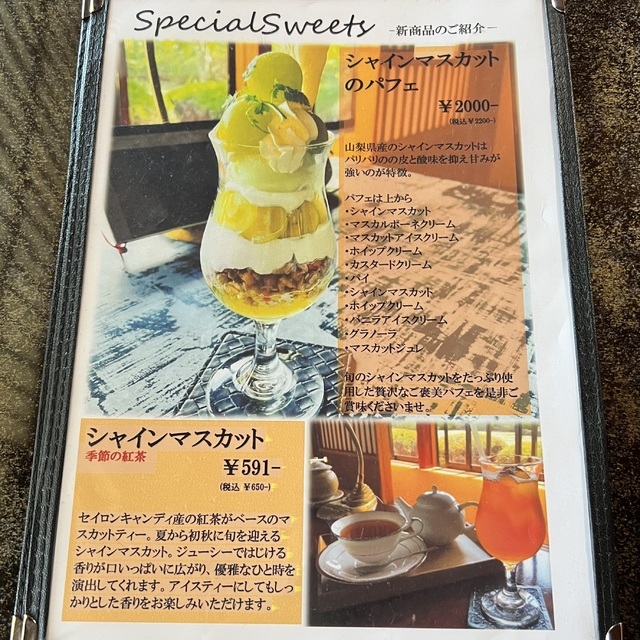 SpecialSweets
-新商品のご紹介-
シャインマスカット
のパフェ
¥2000-
(税込¥2200-)
山梨県産のシャインマスカットは
パリパリのの皮と酸味を抑え甘みが
強いのが特徴。
パフェは上から
・シャインマスカット
・マスカルポーネクリーム
・マスカットアイスクリーム
・ホイップクリーム
・カスタードクリーム
・パイ
・シャインマスカット
・ホイップクリーム
・バニラアイスクリーム
・グラノーラ
・マスカットジュレ
旬のシャインマスカットをたっぷり使
用した贅沢なご褒美パフェを是非ご
賞味くださいませ。
シャインマスカット
季節の紅茶
¥591-
(税込 ¥650-)
セイロンキャンディ産の紅茶がベースのマ
スカットティー。夏から初秋に旬を迎える
シャインマスカット。ジューシーではじける
香りが口いっぱいに広がり、優雅なひと時を
演出してくれます。アイスティーにしてもしっ
かりとした香りをお楽しみいただけます。